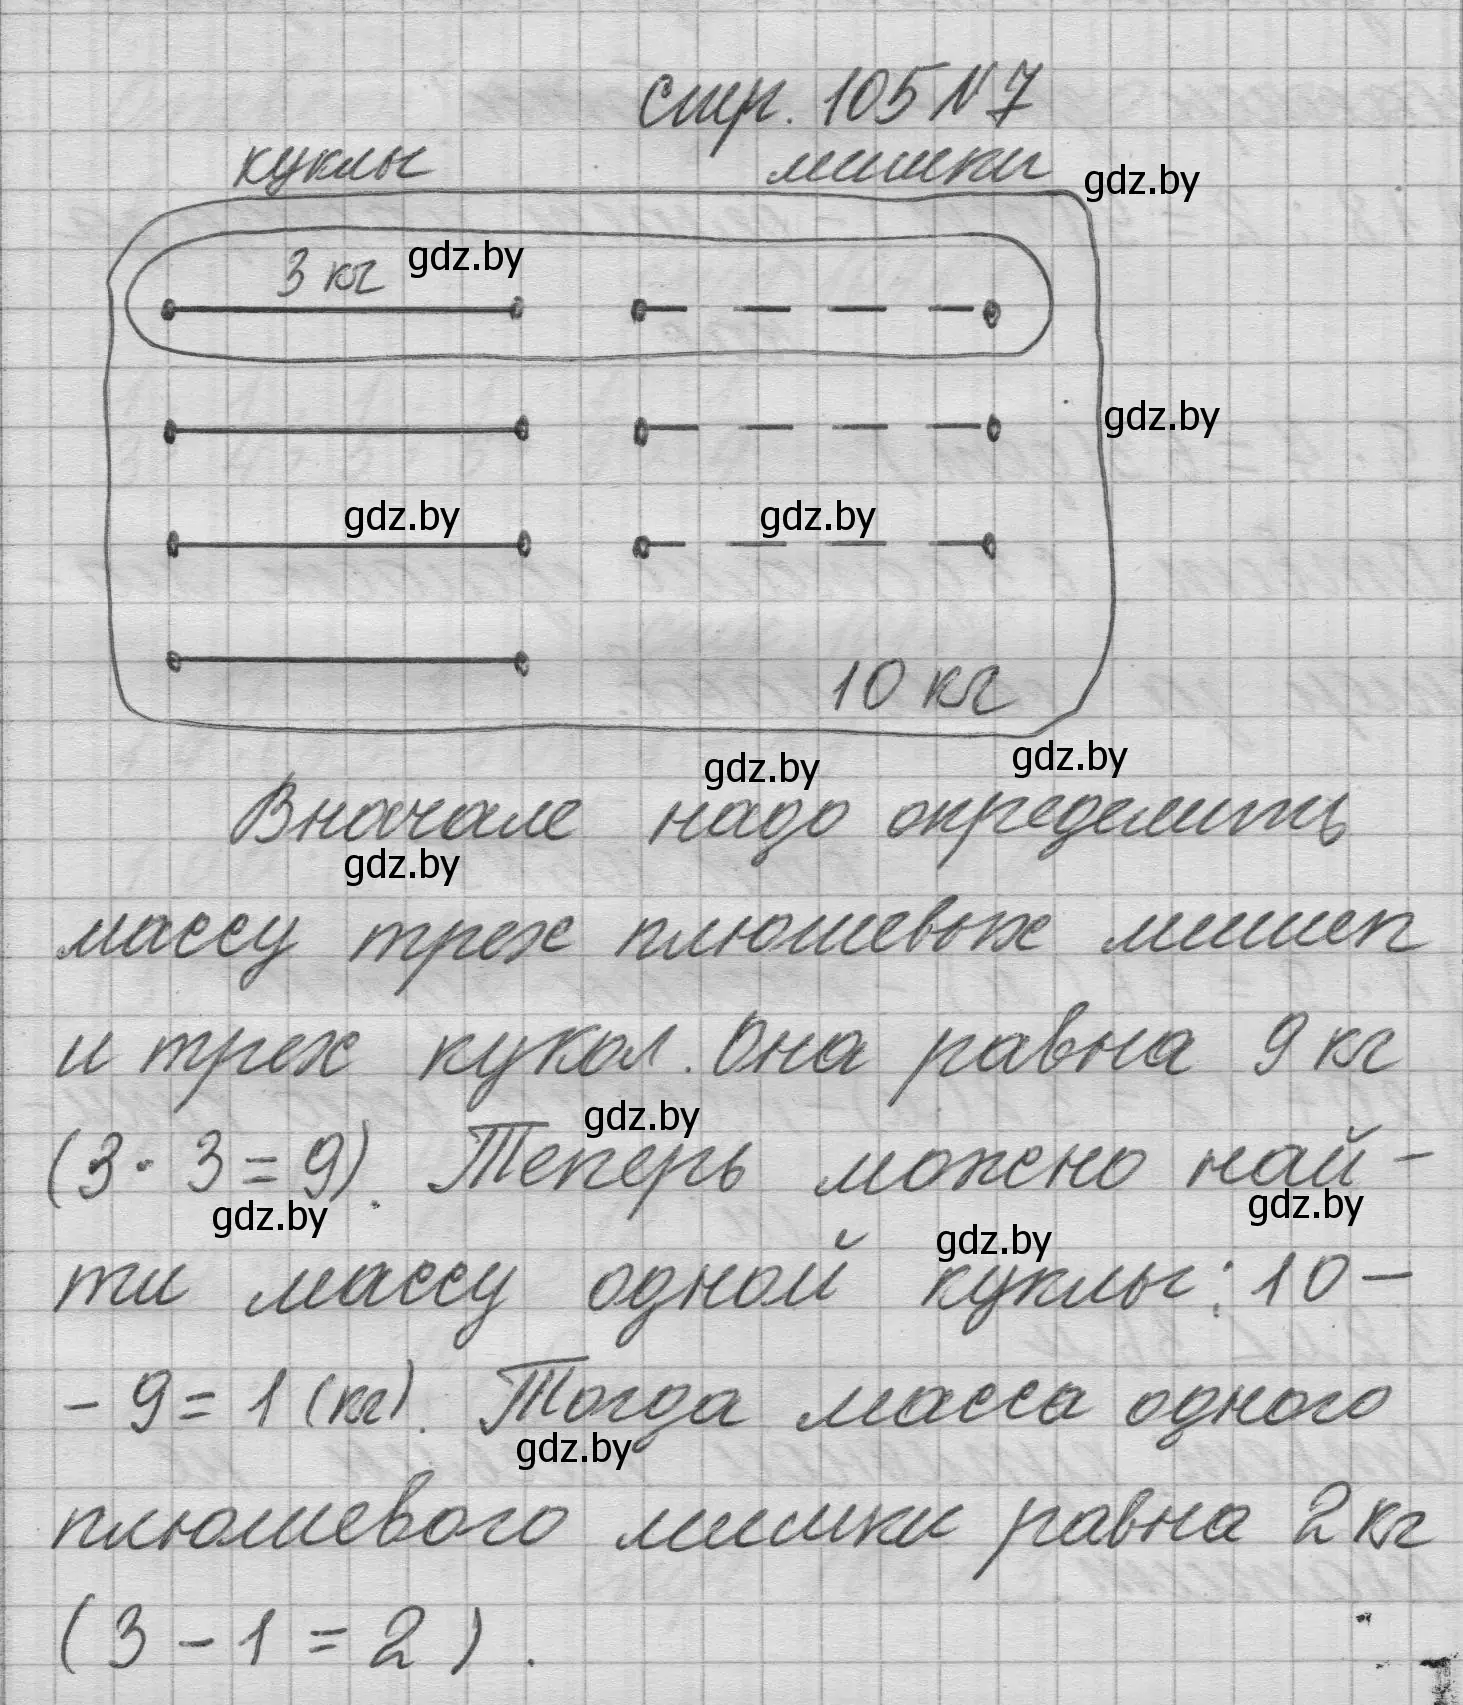 стр. 105 N 7
куклы мишки
gdz.by
3 кг gdz.by
gdz.by
gdz.by gdz.by
10 кг
gdz.by gdz.by
Вначале надо определить
gdz.by
массу трех плюшевых мишек
и трех кукол. Она равна 9 кг
gdz.by
(3 · 3 = 9). Теперь можно най-
gdz.by gdz.by
gdz.by
ти массу одной куклы: 10 –
- 9 = 1 (кг). Тогда масса одного
gdz.by
плюшевого мишки равна 2 кг
(3 – 1 = 2).